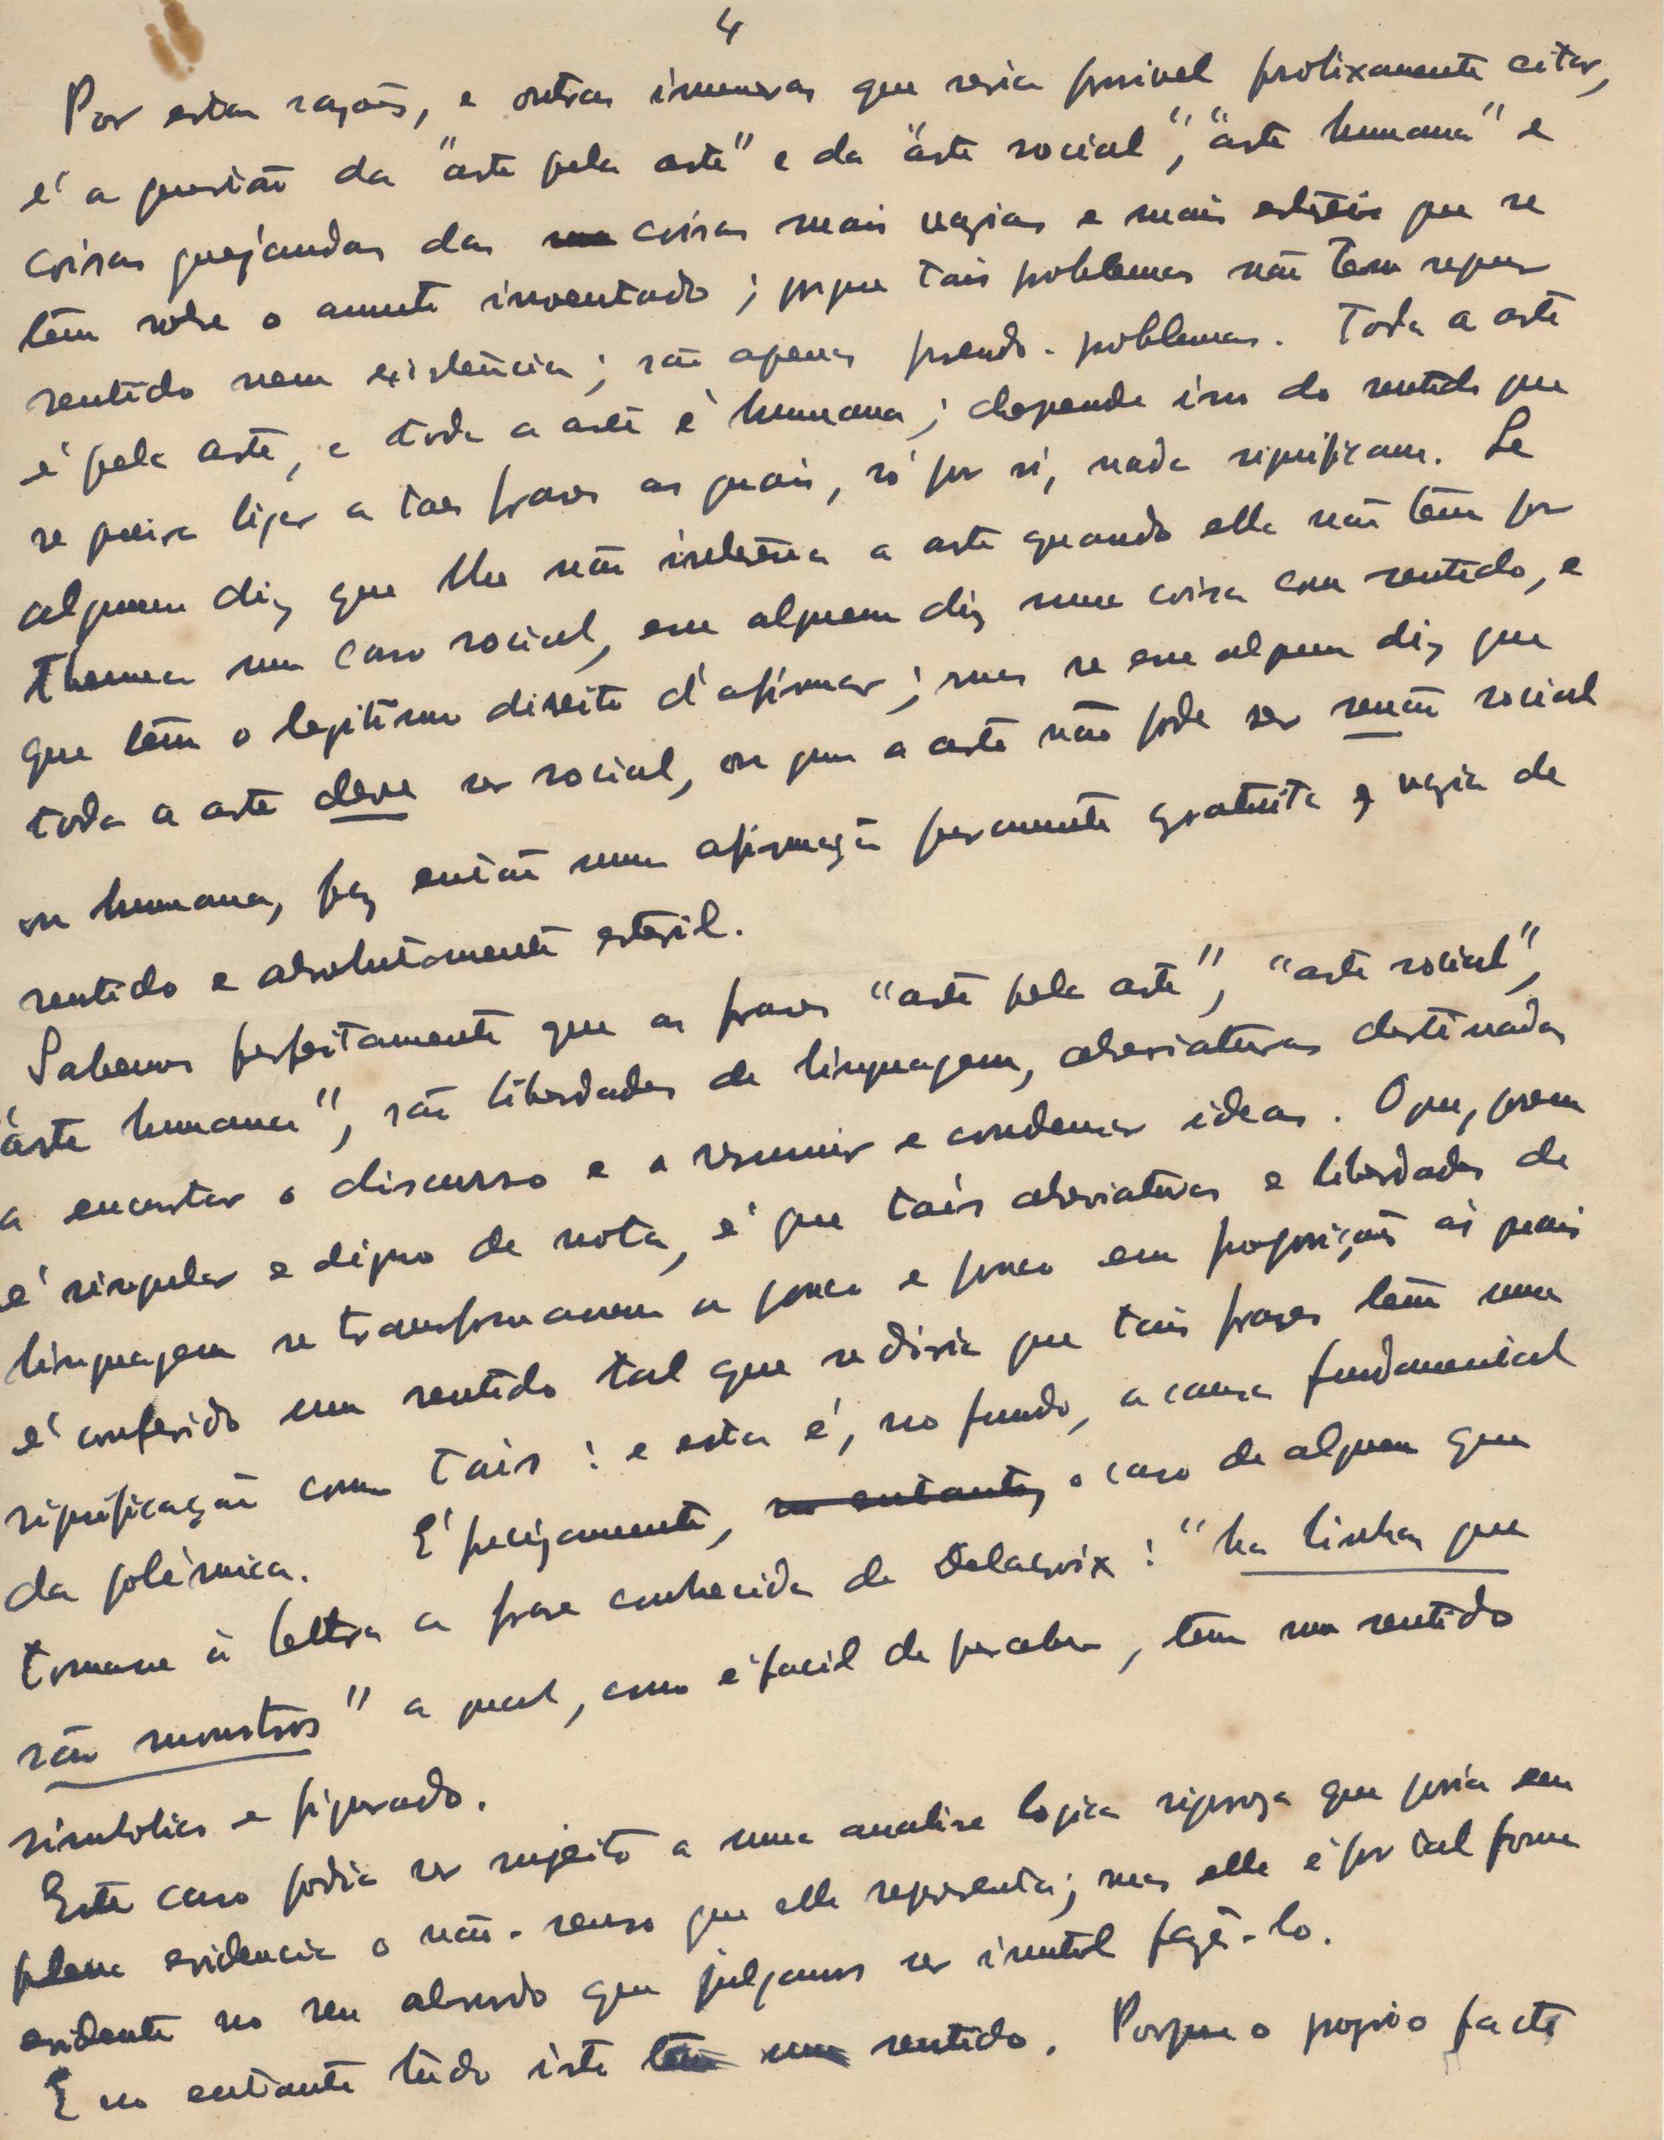 4
Por estas razões, e outras inumeras que seria possivel prolixamente citar,
é a questão da "arte pela arte" e da "arte social", "arte humana" e
coisas quejandas das coisas mais vazias e mais estéreis que se
têm sobre o assunto inventado; porque tais problemas não têm sequer
sentido nem existência; são apenas pseudo-problemas. Toda a arte
é pela arte, e toda a arte é humana; depende isso do sentido que
se queira ligar a tais frases as quais, só por si, nada significam. Se
alguem diz que lhe não interessa a arte quando ella não têm por
thema um caso social, esse alguem diz uma coisa com sentido, e
que têm o legitimo direito d'afirmar; mas se esse alguem diz que
toda a arte deve ser social, ou que a arte não pode ser senão social
ou humana, faz então uma afirmação puramente gratuita e vazia de
sentido e absolutamente esteril.
Sabemos perfeitamente que as frases "arte pela arte", "arte social",
"arte humana", são liberdades de linguagem, abreviaturas destinadas
a encurtar o discurso e a resumir e condensar ideas. O que, porem
é singular e digno de nota, é que tais abreviaturas e liberdades de
linguagem se transformassem a pouco e pouco em proposições ás quais
é conferido um sentido tal que se diria que tais frazes têm uma
significação como tais: e esta é, no fundo, a causa fundamental
da polémica. É precizamente, no entanto, o caso de alguem que
tomasse á lettra a frase conhecida de Delacroix: "ha linhas que
são monstros" a qual, como é facil de perceber, tem um sentido
simbolico e figurado.
Este caso podia ser sujeito a uma analise logica rigoroza que poria em
plena evidencia o não-senso que elle representa; mas elle é por tal forma
evidente no seu absurdo que julgamos ser inutil fazê-lo.
E no entanto tudo isto têm um sentido. Porque o proprio facto